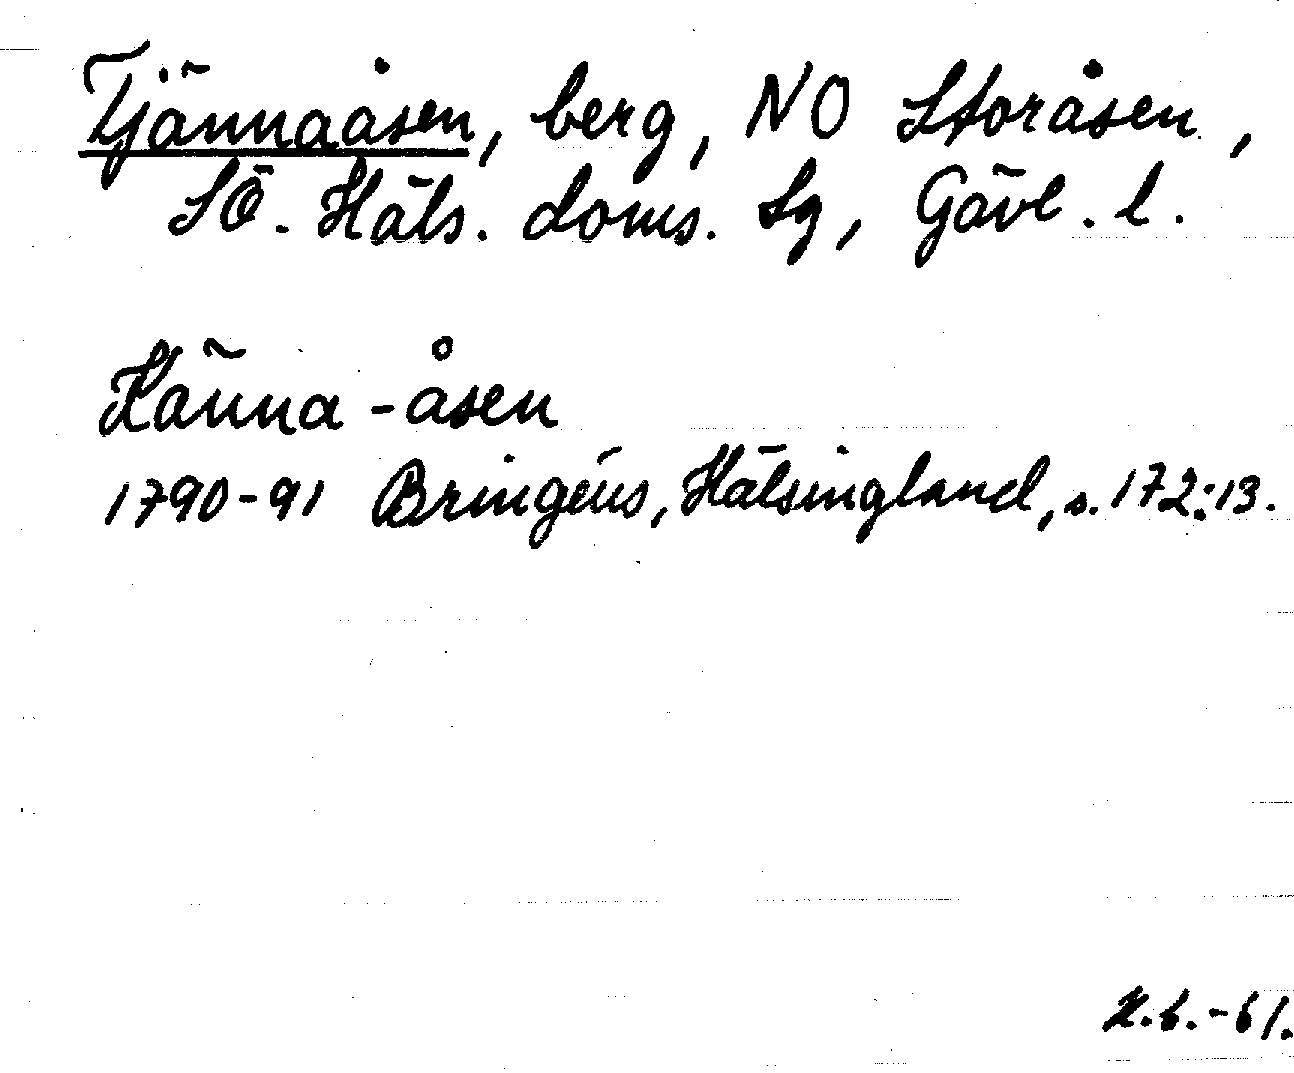 Tjännaåsen, berg, NO Storåsen,
SÖ. Häls. doms. Sg, Gävl. l.
Känna-åsen
1790-91 Bringéus, Hälsingland, s. 172:13.
K.b.-61.